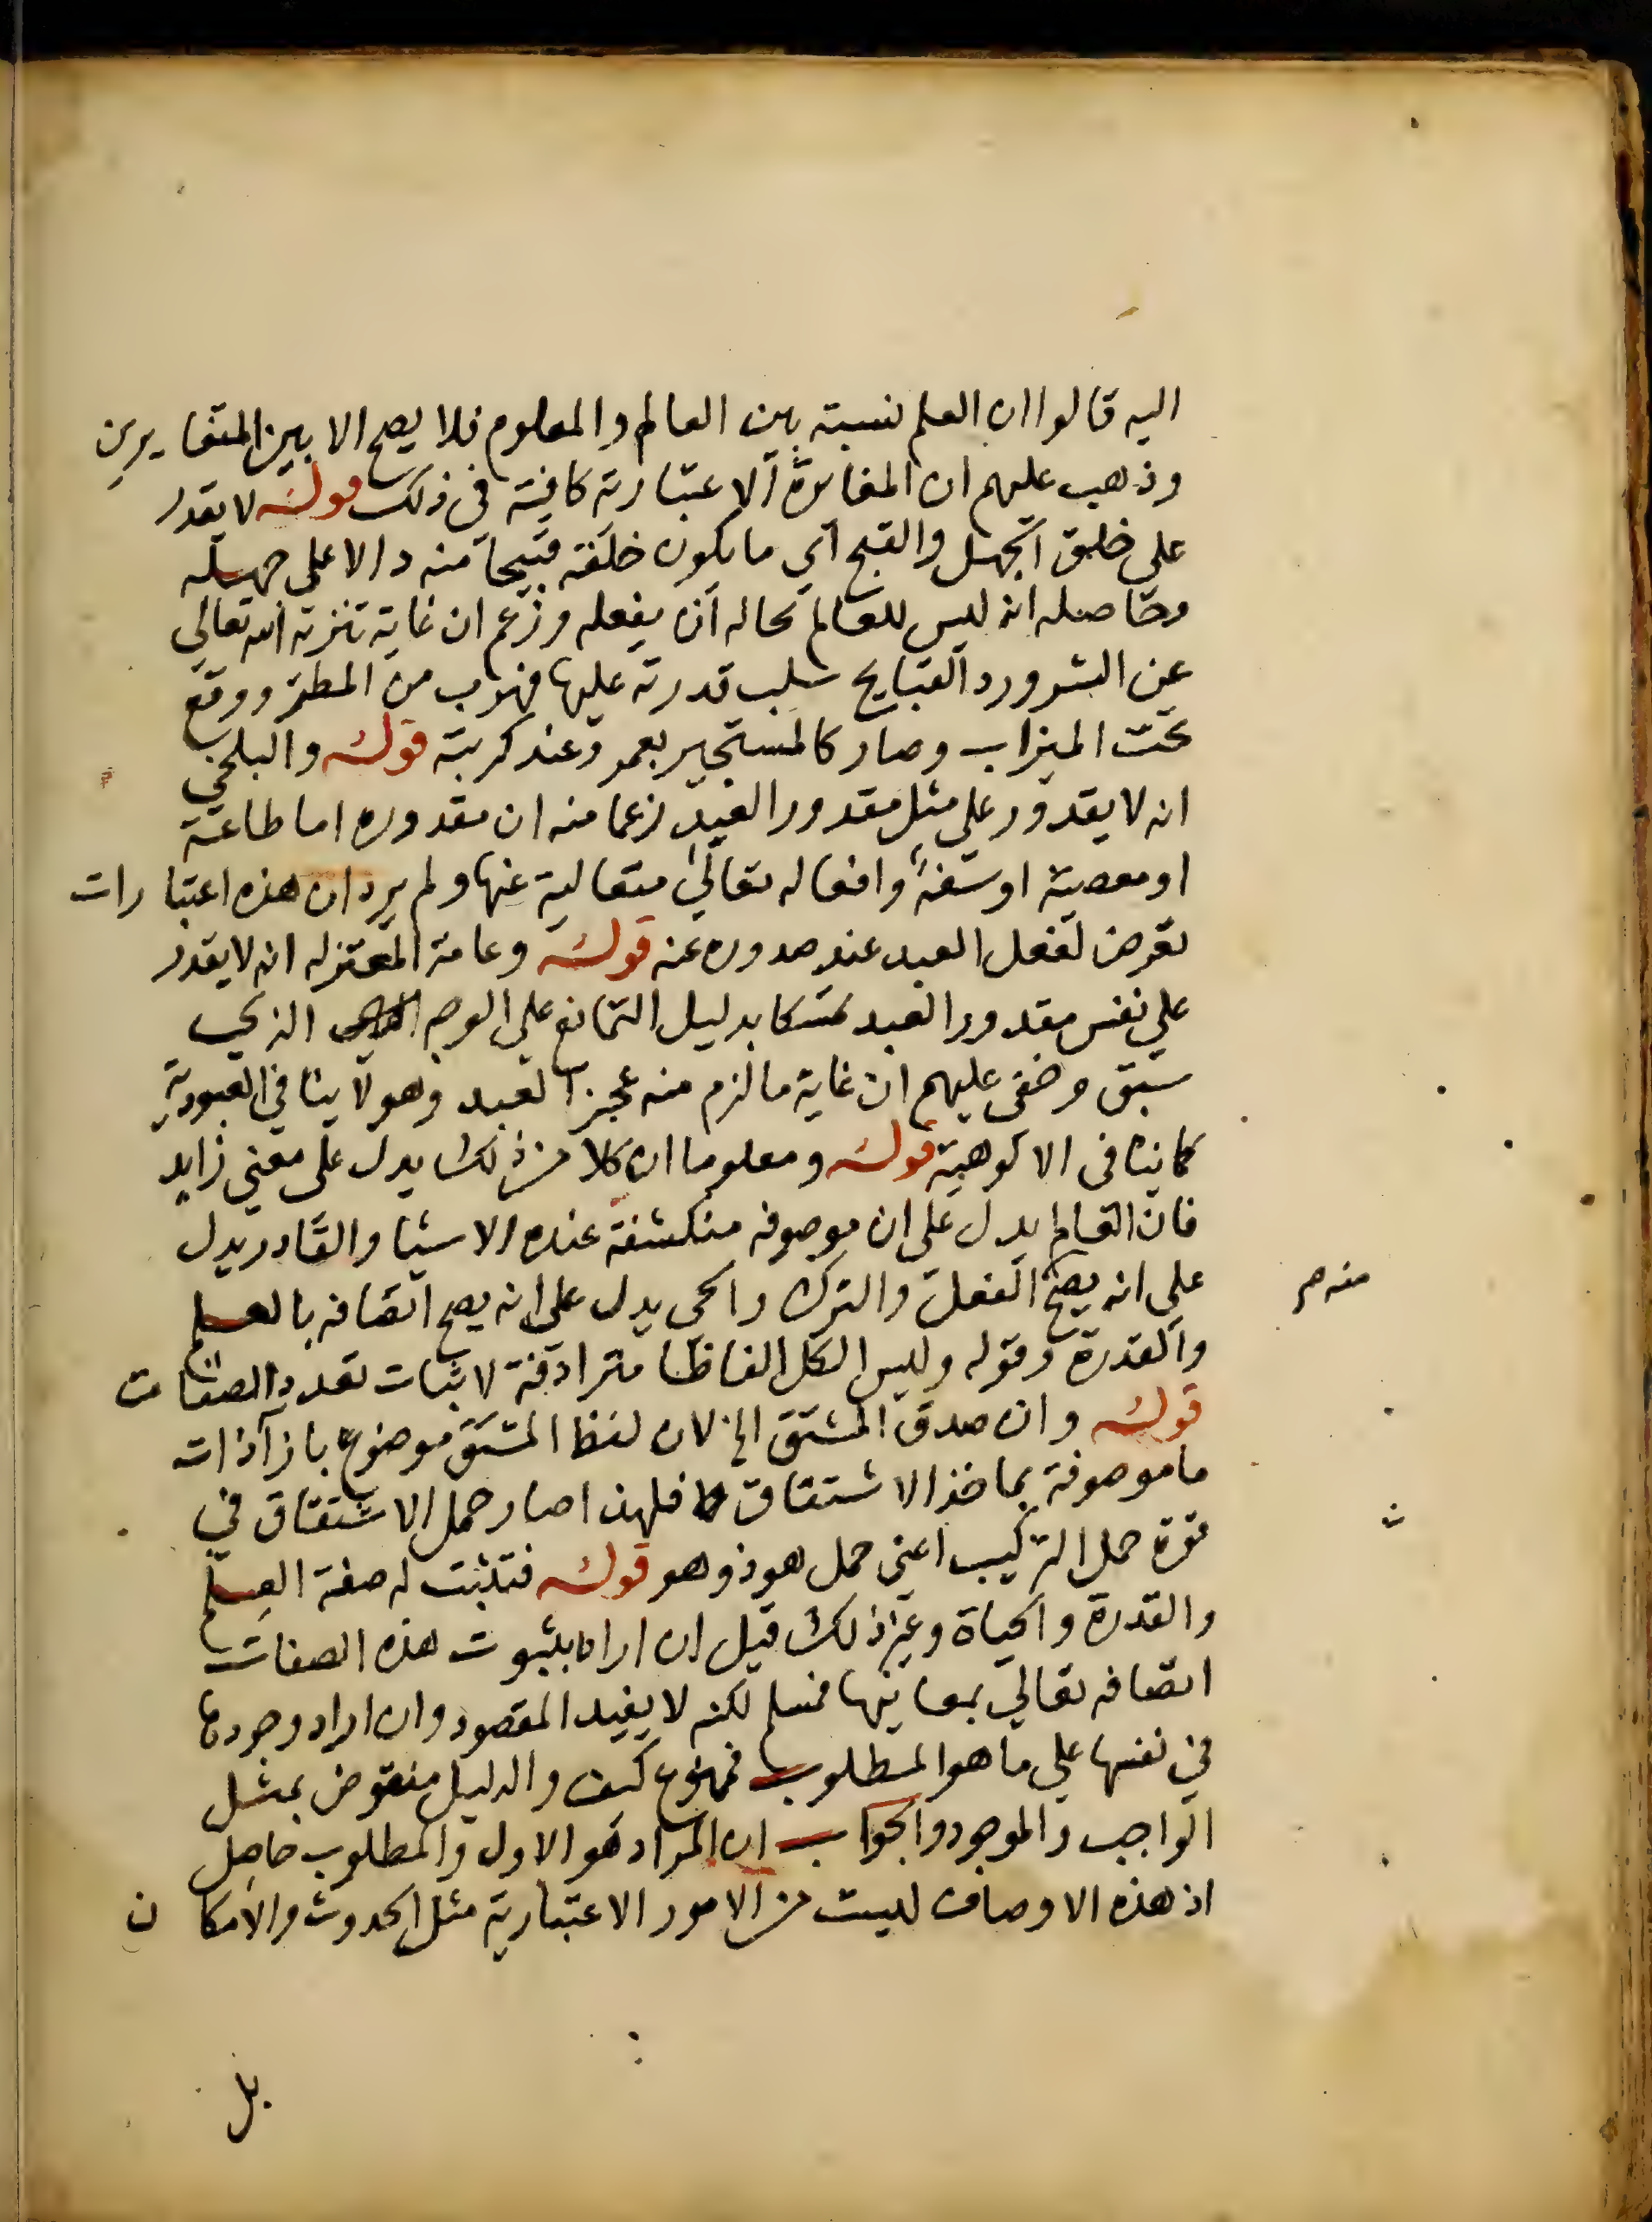 اليه قالوا ان العلم نسبة بين العالم والمعلوم فلا يصح الا بين المتغايرين
وذهب عليهم ان المغايرة الاعتبارية كافية في ذلك قوله لا يقدر
على خلق الجهل والقبح اي ما يكون خلقه قبيحا منه دالا على جهله
وحاصله انه ليس للعالم بحاله ان يفعله وزعم ان غاية تنزيه الله تعالى
عن الشرور والقبايح سلب قدرته عليها فهرب من المطر ووقع
تحت الميزاب وصار كالمستجير بعمرو عند كربته قوله والبلخي
انه لا يقدر على مثل مقدور العبد زعما منه ان مقدوره اما طاعة
او معصية او سفه وافعاله تعالى متعالية عنها ولم يرد ان هذه اعتبارات
تعرض لفعل العبد عند صدوره عنه قوله وعامة المعتزله انه لا يقدر
على نفس مقدور العبد تمسكا بدليل التمانع على الوجه الذي
سبق وخفى عليهم ان غاية ما لزم منه عجز العبد وهو لا ينافي العبودية
كما ينافى الالوهية قوله ومعلوما ان كلا من ذلك يدل على معنى زايد
فان العالم يدل على ان موصوفه منكشفة عنده الاشيا والقادر يدل
على انه يصح الفعل والترك والحى يدل على انه يصح اتصافه بالعلم
منه م
والقدرة وقوله وليس الكل الفاظا مترادفة لاثبات تعدد الصفات
قوله وان صدق المشتق الخ لان لفظ المشتق موضوع بازآء ذات
ما موصوفة بماخذ الاشتقاق فلهذا صار حمل الاشتقاق في
قوة حمل التركيب اعني حمل هو ذو هو قوله فتثبت له صفة العلم
والقدرة والحياة وغير ذلك قيل ان اراد بثبوت هذه الصفات
اتصافه تعالى بمعانيها فمسلم لكنه لا يفيد المقصود وان اراد وجودها
في نفسها على ما هو المطلوب فممنوع كيف والدليل منقوض بمثل
الواجب والموجود والجواب ان المراد هو الاول والمطلوب حاصل
اذ هذه الاوصاف ليست من الامور الاعتبارية مثل الحدوث والامكان
بل